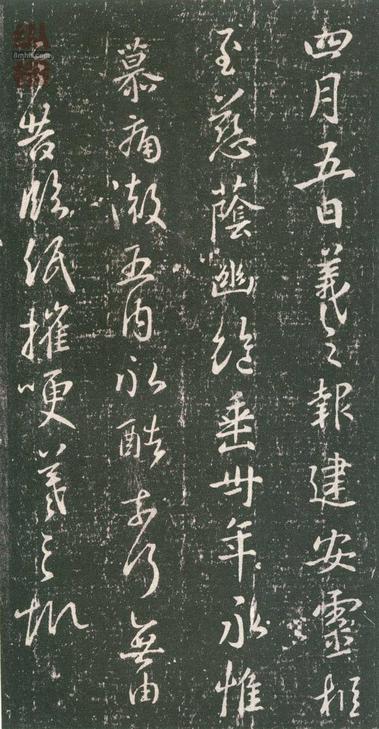 四月五日羲之報建安靈柩
至慈蔭幽絕垂卅年永惟
慕痛徹五內永酷奈何無由
臨紙摧哽羲之報